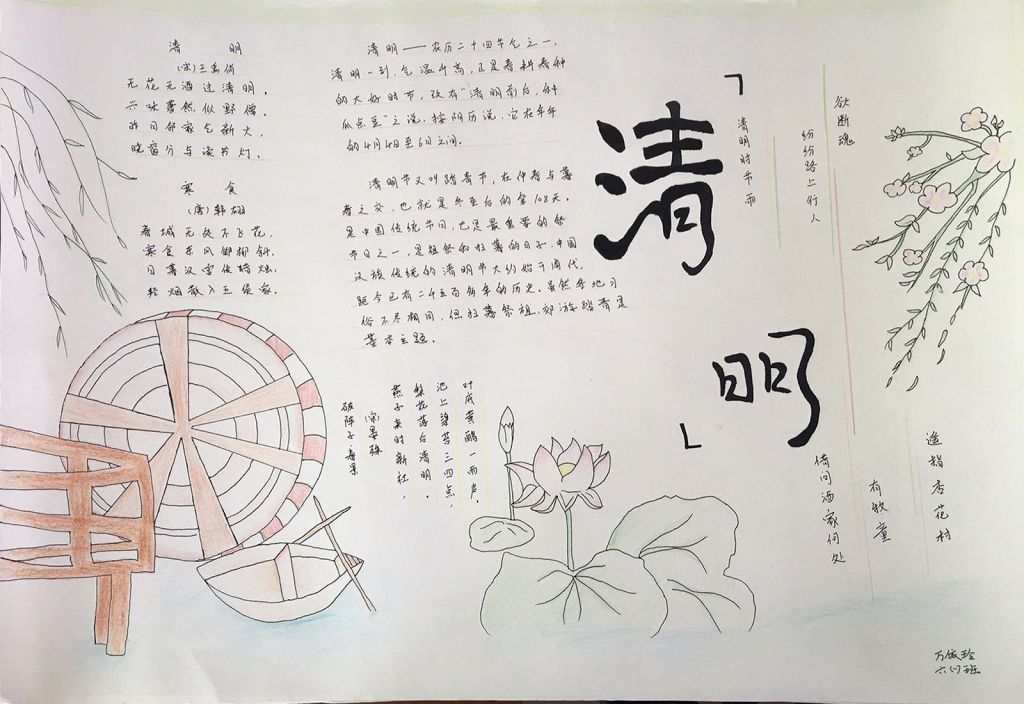 清 明
(宋)王禹偁
无花无酒过清明,
兴味萧然似野僧。
昨日邻家乞新火,
晓窗分与读书灯。
寒 食
(唐)韩翃
春城无处不飞花,
寒食东风御柳斜。
日暮汉宫传蜡烛,
轻烟散入五侯家。
清明——农历二十四节气之一,
清明一到,气温升高,正是春耕春种
的大好时节,故有“清明前后,种
瓜点豆”之说。按阳历说,它在每年
的4月4日至6日之间。
清明节又叫踏青节,在仲春与暮
春之交,也就是冬至后的第108天。
是中国传统节日,也是最重要的祭
节日之一,是祭祖和扫墓的日子。中国
汉族传统的清明节大约始于周代,
距今已有二千五百多年的历史。虽然各地习
俗不尽相同,但扫墓祭祖、郊游踏青是
基本主题。
「清明」
清明时节雨
纷纷路上行人
欲断魂
借问酒家何处
有牧童
遥指杏花村
破阵子·春景
(宋)晏殊
燕子来时新社,
梨花落后清明。
池上碧苔三四点,
叶底黄鹂一两声。
六(1)班